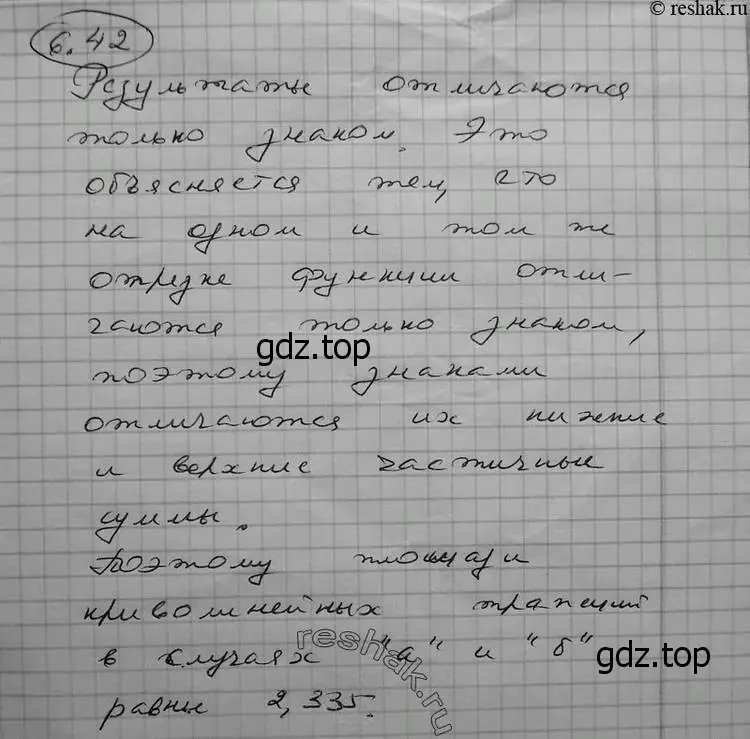 © reshak.ru
6.42
Результаты отличаются
только знаком. Это
объясняется тем, что
на одном и том же
отрезке функции отли-
чаются только знаком,
gdz.top
поэтому знаками
отличаются их нижние
и верхние частичные
суммы.
Поэтому площади
криволинейных трапеций
в случаях "а" и "б"
reshak.ru
gdz.top
равны 2,335.